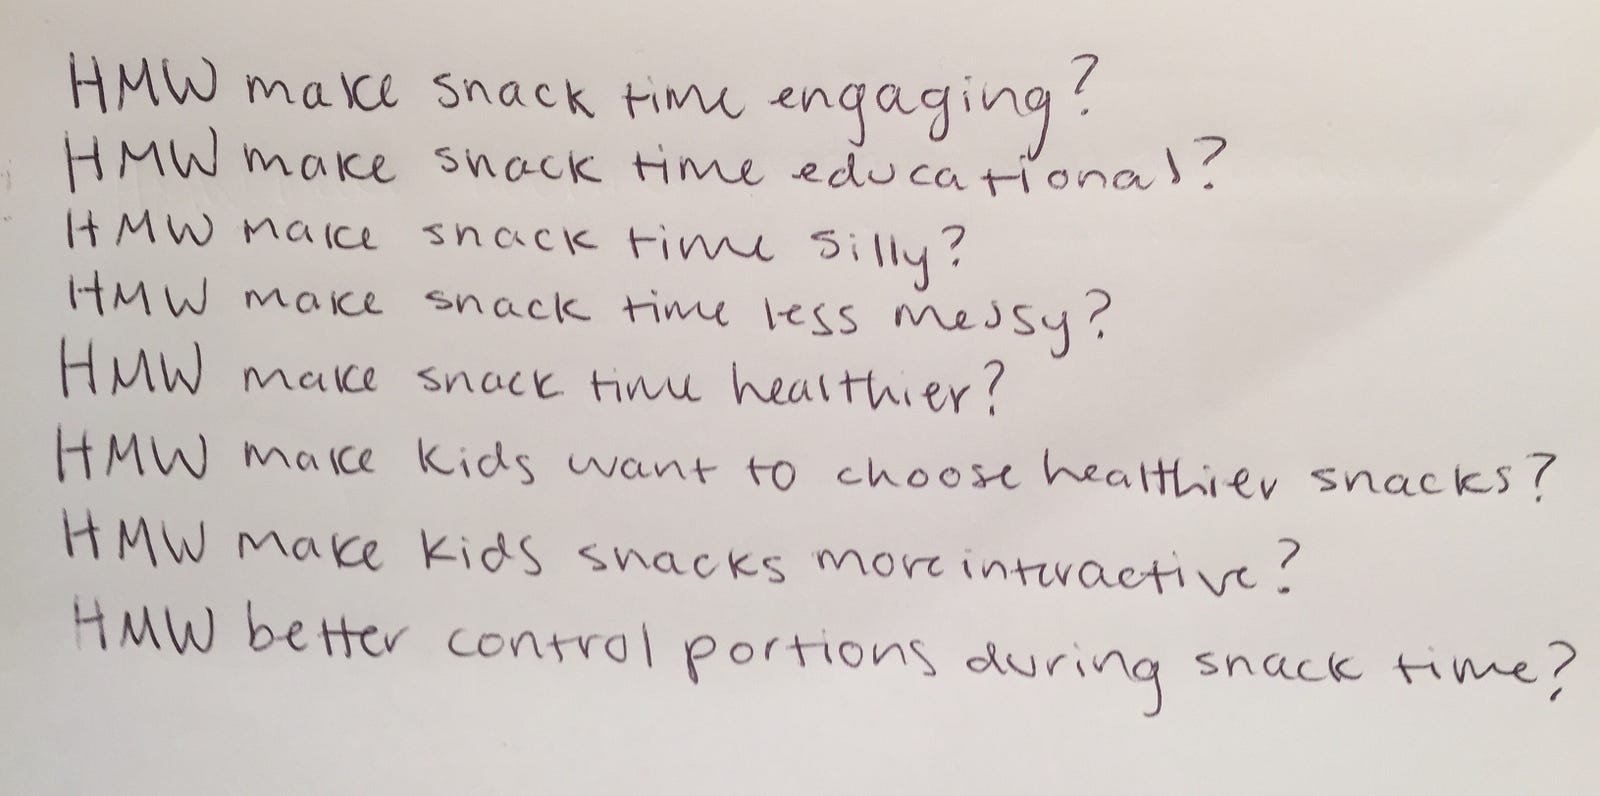 HMW make snack time engaging?
HMW make snack time educational?
HMW make snack time silly?
HMW make snack time less messy?
HMW make snack time healthier?
HMW make kids want to choose healthier snacks?
HMW make kids snacks more interactive?
HMW better control portions during snack time?